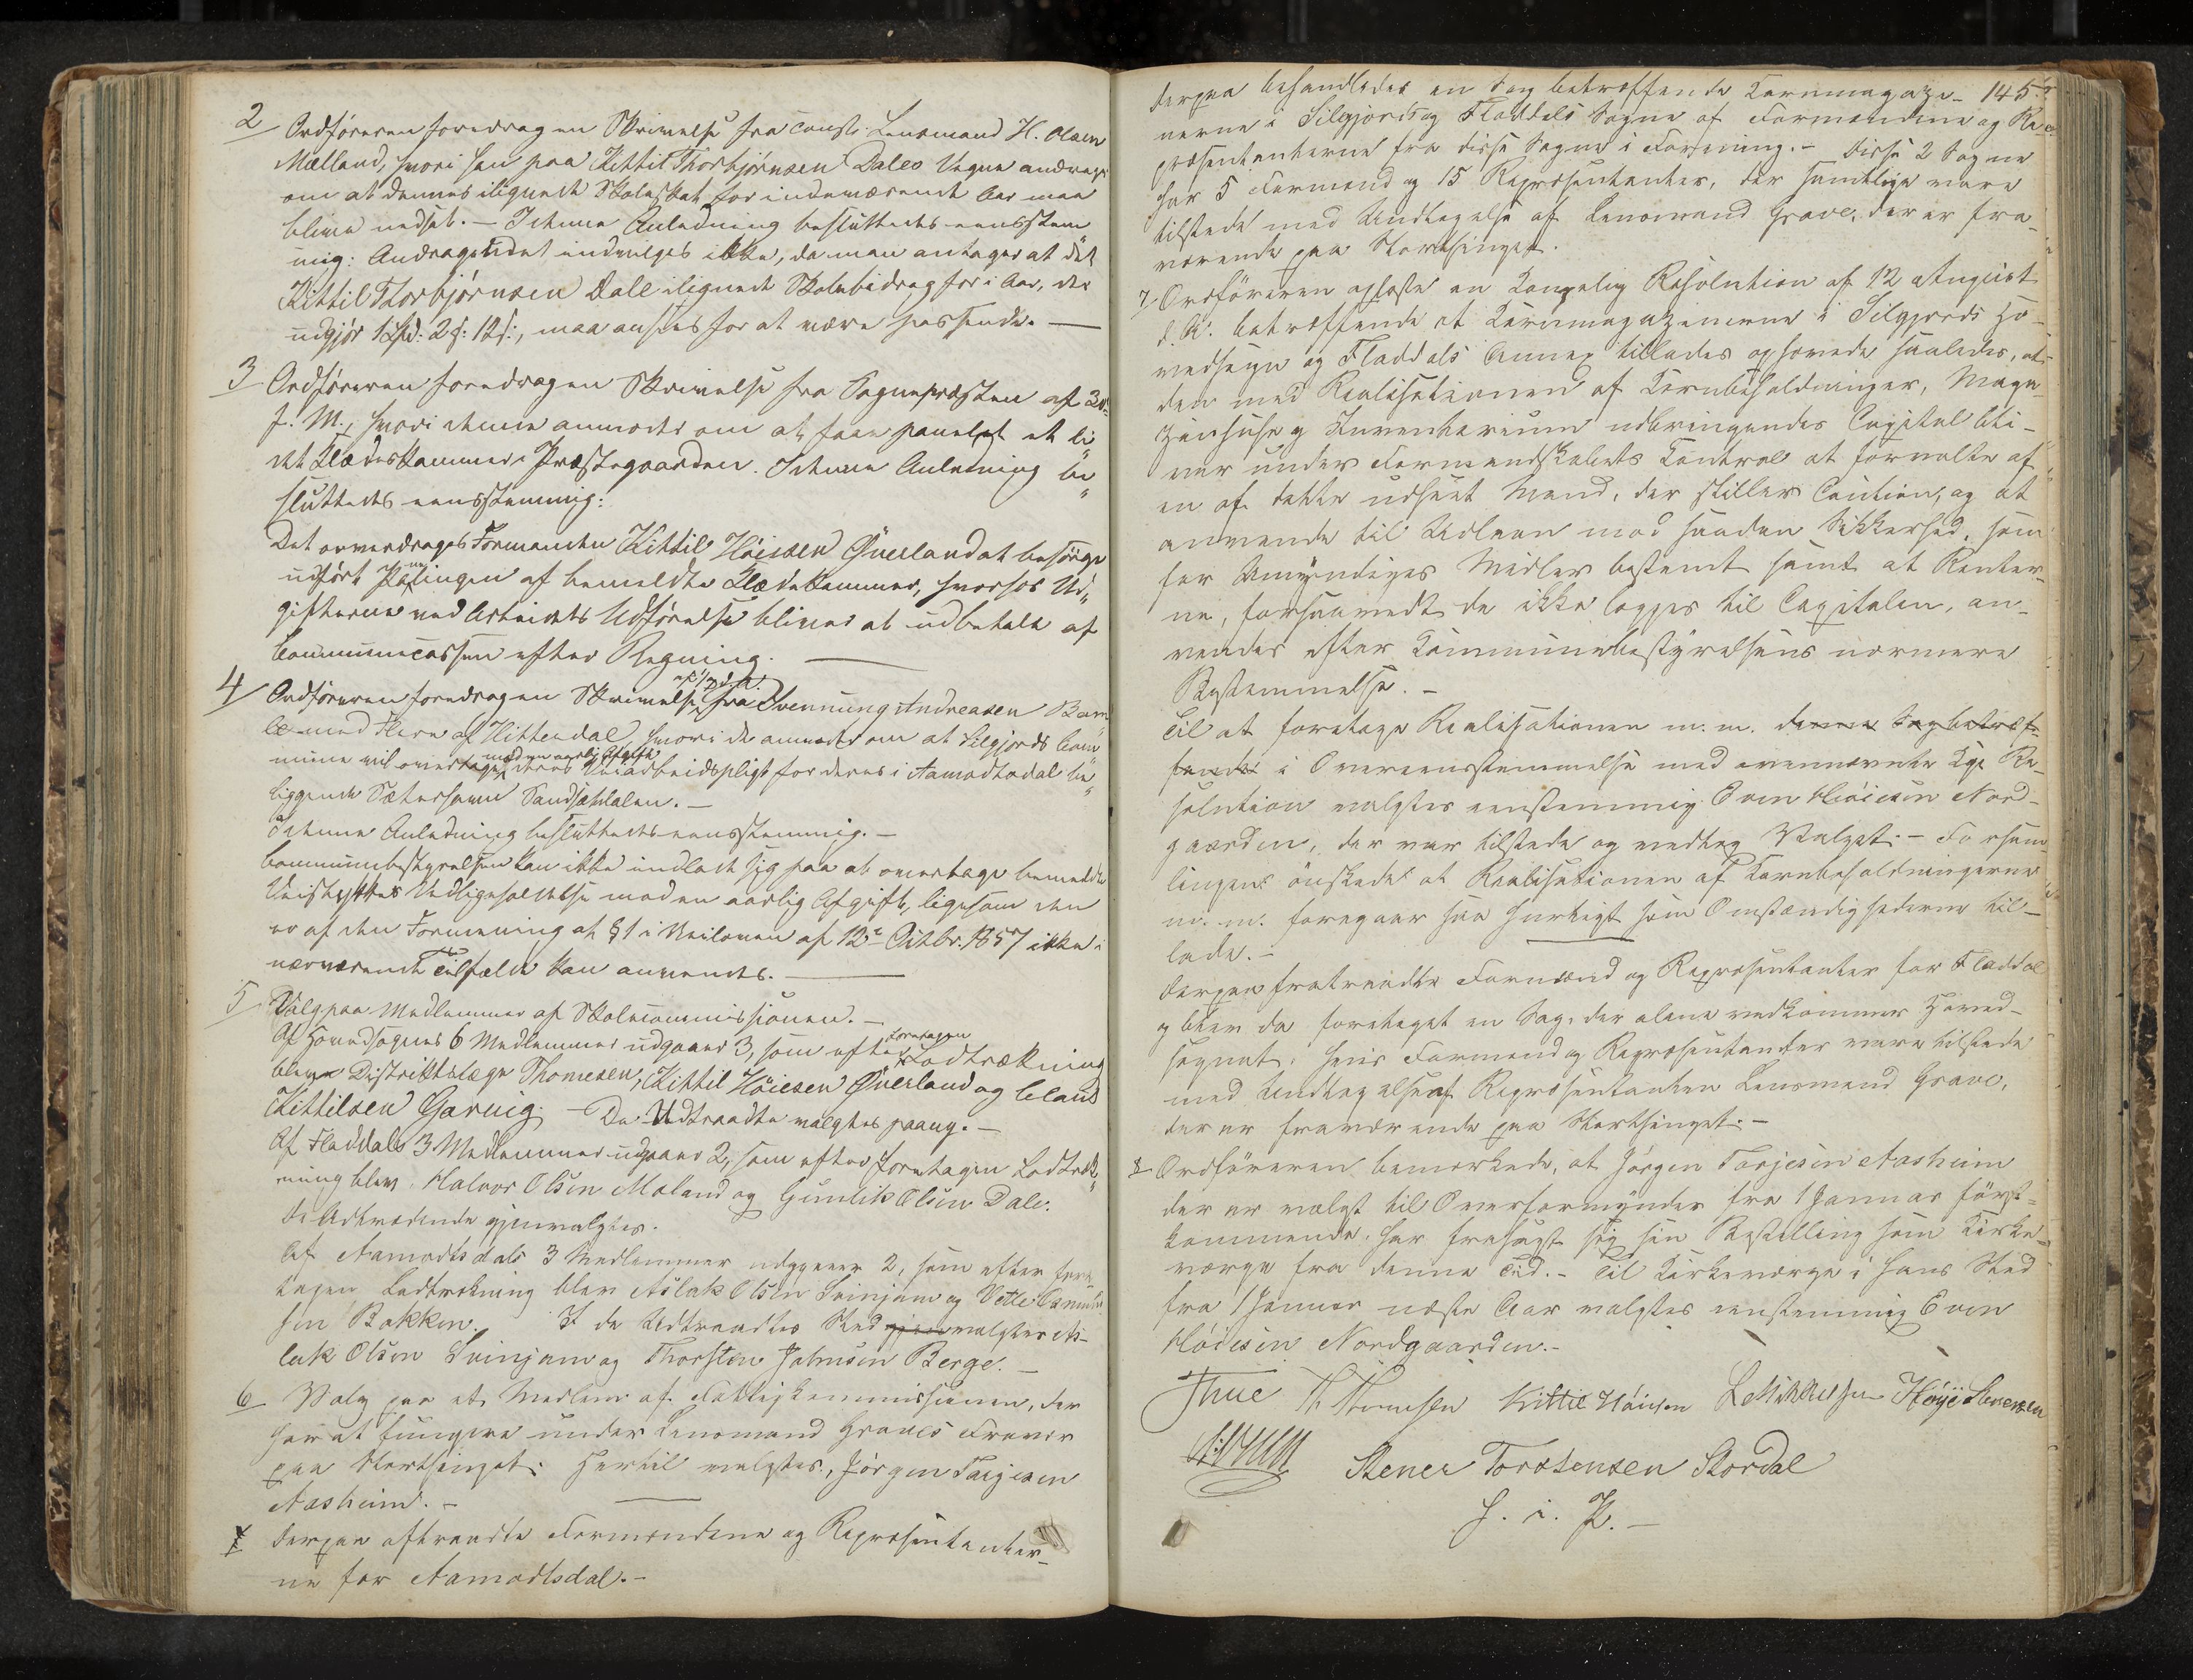 2 Ordføreren foredrog en Skrivelse fra const. Lensmand H. Olsen
Mælland, hvori han paa Kittil Thorbjørnsen Dales Vegne andrager
om at dennes ilignede Skoleskat for indeværende Aar maa
blive nedsat. – I denne Anledning besluttedes eensstem
mig: Andragendet indvilges ikke, da man antager at det
Kittil Thorbjørnsen Dale ilignede Skolebidrag for i Aar, der
udgjør 1 Spd: 2 ß: 12 s:, maa ansees for at være passende. —
3 Ordføreren foredrog en Skrivelse fra Sognepræsten af 30.
f. M., hvori denne anmoder om at faae panelet et li
det Klædeskammer i Præstegaarden. I denne Anledning be
sluttedes eensstemmig:
Det overdrages Formanden Kittil Høiesen Øverland at besørge
udført Palingen af bemeldte Klædekammer, hvorfor Ud
gifterne ved Arbeidets Udførelse bliver at udbetale af
Communecassen efter Regning. —
4 Ordføreren foredrog en Skrivelse fra Svennung Andreasen Bam
le med Flere af Hitterdal, hvori de anmoder om at Silgjords Com
mune vil overtage med en aarlig Afgift deres Veiarbeidspligt for deres i Aamodtsdal be
liggende Sæterhavn Sandsætdalen. –
I denne Anledning besluttedes eensstemmig. –
Communebestyrelsen kan ikke indlade sig paa at overtage bemeldte
Veistykkes Vedligeholdelse mod en aarlig Afgift, ligesom den
er af den Formening at § 1 i Veiloven af 12te Octbr. 1857 ikke i
nærværende Tilfælde kan anvendes. —
5 Valg paa Medlemmer af Skolecommissionen. –
Af Hovedsognets 6 Medlemmer udgaaer 3, som efter foretagen Lodtrækning
bleve Distriktslæge Thomesen, Kittil Høiesen Øverland og Claus
Kittilsen Garvig. – De Udtraadte valgtes paany. –
Af Fladdals 3 Medlemmer udgaaer 2, som efter foretagen Lodtræk
ning blev Halvor Olsen Moland og Gunlik Olsen Dale.
De Udtrædende gjenvalgtes.
Af Aamodtsdals 3 Medlemmer udgaaer 2, som efter fore
tagen Lodtrækning blev Aslak Olsen Svinjom og Vetle
sen Bakken. I de Udtraadtes Sted valgtes As-
lak Olsen Svinjom og Thorsten Johnsen Berge. –
6 Valg paa et Medlem af Fattigkommissionen, der
har at fungere under Lensmand Graves Fravær
paa Storthinget. Hertil valgtes, Jørgen Tarjesen
Aasheim. –
Derpaa aftraadte Formændene og Repræsentanter-
ne for Aamodtsdal. –
Derpaa behandledes en Sag betræffende Kornmagazi- 145.
nerne i Silgjords og Fladdals Sogne af Formændene og Re-
præsentanterne fra disse Sogne i Forening. – Disse 2 Sogne
har 5 Formænd og 15 Repræsentanter, der samtlige vare
tilstede med Undtagelse af Lensmand Grave, der er fra-
værende paa Storthinget.
7 Ordføreren oplæste en Kongelig Resolution af 12 August
d. A. betræffende at Kornmagazinerne i Silgjords Ho-
vedsogn og Fladdals Annex tillades ophævede saaledes, at
den ved Realisationen af Kornbeholdninger, Maga-
zinhuse og Inventarium udbringendes Capital bli-
ver under Formandskabets Control at forvalte af
en af dette udseet Mand, der stiller Caution, og at
anvende til Udlaan mod saadan Sikkerhed, som
for Umyndiges Midler bestemt samt at Renter-
ne, forsaavidt de ikke lægges til Capitalen, an-
vendes efter Kommunebestyrelsens nærmere
Bestemmelse. –
Til at foretage Realisationen m. m. denne Sag betræf-
fende i Overeensstemmelse med ovennævnte Kgl. Re-
solution valgtes eenstemmig Even Høiesen Nord-
gaarden, der var tilstede og vedtog Valget. – Forsam-
lingen ønskede at Realisationen af Kornbeholdningerne
m. m. foregaar saa hurtigt som Omstændighederne til-
lade. –
Derpaa fratraadte Formænd og Repræsentanter for Fladdal
og blev da foretaget en Sag, der alene vedkommer Hoved-
sognet, hvis Formænd og Repræsentanter vare tilstede
med Undtagelse af Repræsentanten Lensmand Grave,
der er fraværende paa Storthinget. –
8 Ordføreren bemærkede, at Jørgen Tarjesen Aasheim
der er valgt til Overformynder fra 1 Januar først-
kommende, har frasagt sig sin Bestilling som Kirke-
værge fra denne Tid. – Til Kirkeværge i hans Sted
fra 1 Januar næste Aar valgtes eenstemmig Even
Høiesen Nordgaarden. –
Thue Thomesen Kittil Høiesen Høye Stenersen
Stener Torstensen Stordal
h. i. P. –